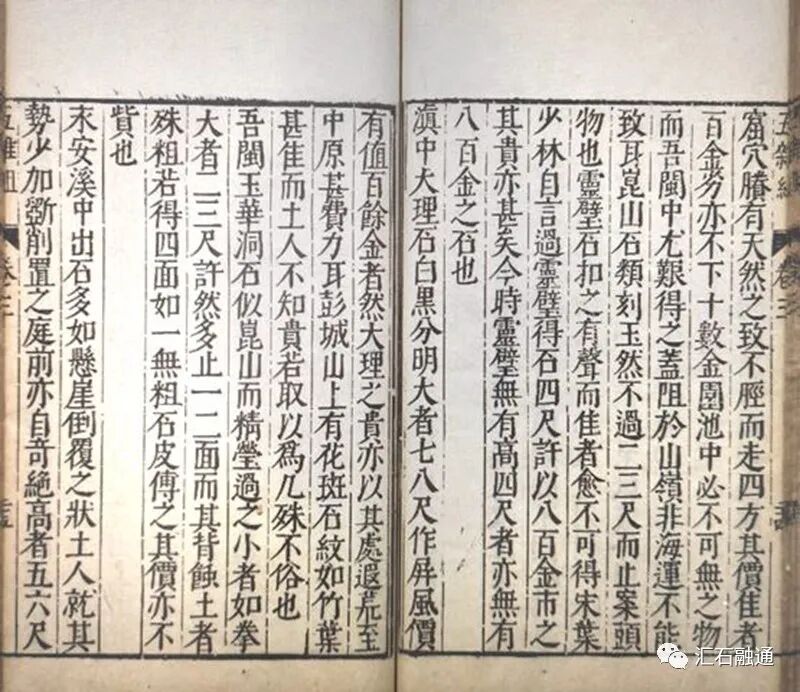 窟穴賸有天然之致不脛而走四方其價佳者
百金劣亦不下十數金園池中必不可無之物
而吾閩中尤艱得之蓋阻於山嶺非海運不能
致耳崑山石類刻玉然不過二三尺而止案頭
物也靈璧石扣之有聲而佳者愈不可得宋葉
少林自言過靈璧得石四尺許以八百金市之
其貴亦甚矣今時靈璧無有高四尺者亦無有
八百金之石也
滇中大理石白黑分明大者七八尺作屏風價
有值百餘金者然大理之貴亦以其處遐荒至
中原甚費力耳彭城山上有花斑石紋如竹葉
甚佳而土人不知貴若取以為几殊不俗也
吾閩玉華洞石似崑山而精瑩過之小者如拳
大者二三尺許然多止一二面而其背蝕土者
殊粗若得四面如一無粗石皮傅之其價亦不
貲也
永安溪中出石多如懸崖倒覆之狀土人就其
勢少加斵削置之庭前亦自奇絕高者五六尺
五雜組
卷三
汇石融通